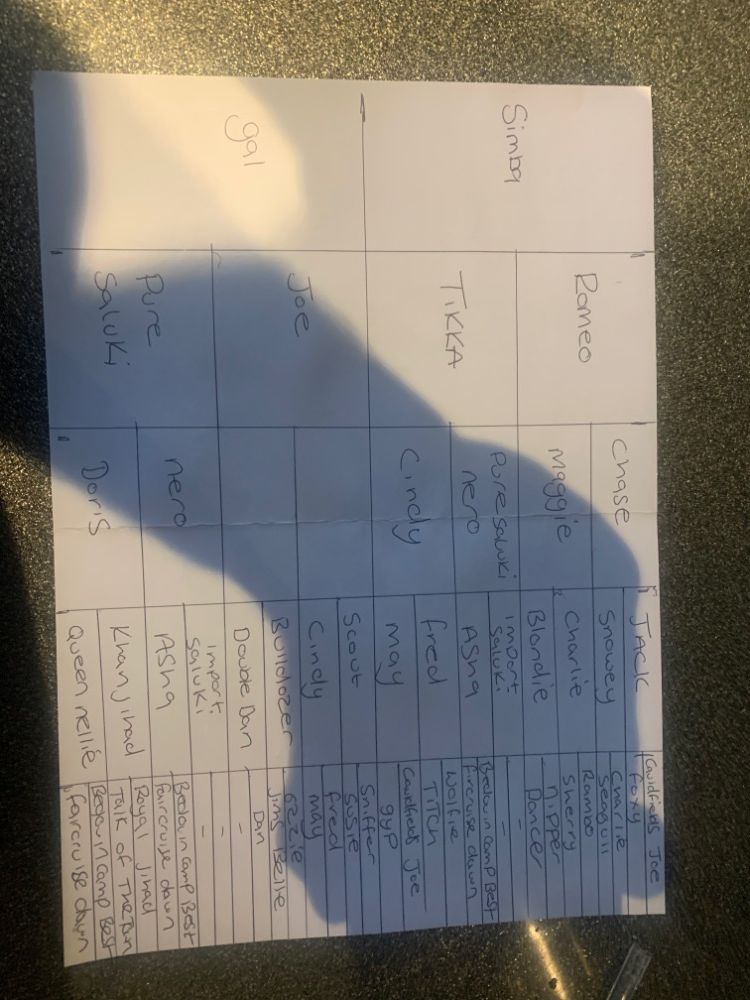 Simba
gal
Romeo
TIKKA
Joe
Pure
Saluki
Chase
Maggie
Pure saluki
nero
Cindy
nero
Doris
JACK
Snowey
Charlie
Blondie
import
saluki
ASHA
fred
may
Scout
Cindy
Bulldozer
Double Dan
import
saluki
ASHA
Khan Jihad
Queen nellie
Joe
foxy
Charlie
Seagull
Rambo
Sherry
Nipper
Dancer
-
-
camp Best
dawn
Wolfie
TITCH
Joe
gyp
Sniffer
Susie
fred
may
ozzie
Jims Belle
Dan
-
-
-
camp Best
faircruise dawn
Royal Jihad
Talk of The Town
camp Best
faircruise dawn